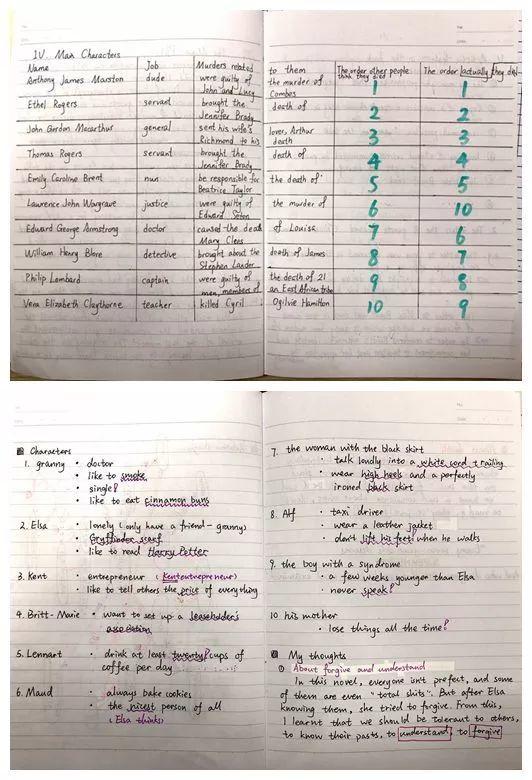 IV. Main Characters
Name Job Murders related to them The order other people think they died The order actually they died
Anthony James Marston dude were guilty of the murder of John and Lucy Combes 1 1
Ethel Rogers servant brought the death of Jennifer Brady 2 2
John Gordon Macarthur general sent his wife's lover, Arthur Richmond to his death 3 3
Thomas Rogers servant brought the death of Jennifer Brady 4 4
Emily Caroline Brent nun be responsible for the death of Beatrice Taylor 5 5
Lawrence John Wargrave justice were guilty of the murder of Edward Seton 6 10
Edward George Armstrong doctor caused the death of Louisa Mary Clees 7 6
William Henry Blore detective brought about the death of James Stephen Landor 8 7
Philip Lombard captain were guilty of the death of 21 men, members of an East African tribe 9 8
Vera Elizabeth Claythorne teacher killed Cyril Ogilvie Hamilton 10 9
Characters
1. granny • doctor
• like to smoke
• single?
• like to eat cinnamon buns
2. Elsa • lonely (only have a friend - granny)
• Gryffindor scarf
• like to read Harry Potter
3. Kent • entrepreneur (Kententrepreneur)
• like to tell others the price of everything
4. Britt-Marie • want to set up a leaseholder's
association
5. Lennart • drink at least twenty? cups of
coffee per day
6. Maud • always bake cookies
• the nicest person of all
(Elsa thinks)
7. the woman with the black skirt
• talk loudly into a white cord trailing
• wear high heels and a perfectly
ironed black skirt
8. Alf • taxi driver
• wear a leather jacket
• don't lift his feet? when he walks
9. the boy with a syndrome
• a few weeks younger than Elsa
• never speak?
10 his mother
• lose things all the time?
My thoughts
① About forgive and understand
In this novel, everyone isn't prefect, and some
of them are even "total shits". But after Elsa
knowing them, she tried to forgive. From this,
I learnt that we should be tolerant to others,
to know their pasts, to understand to forgive